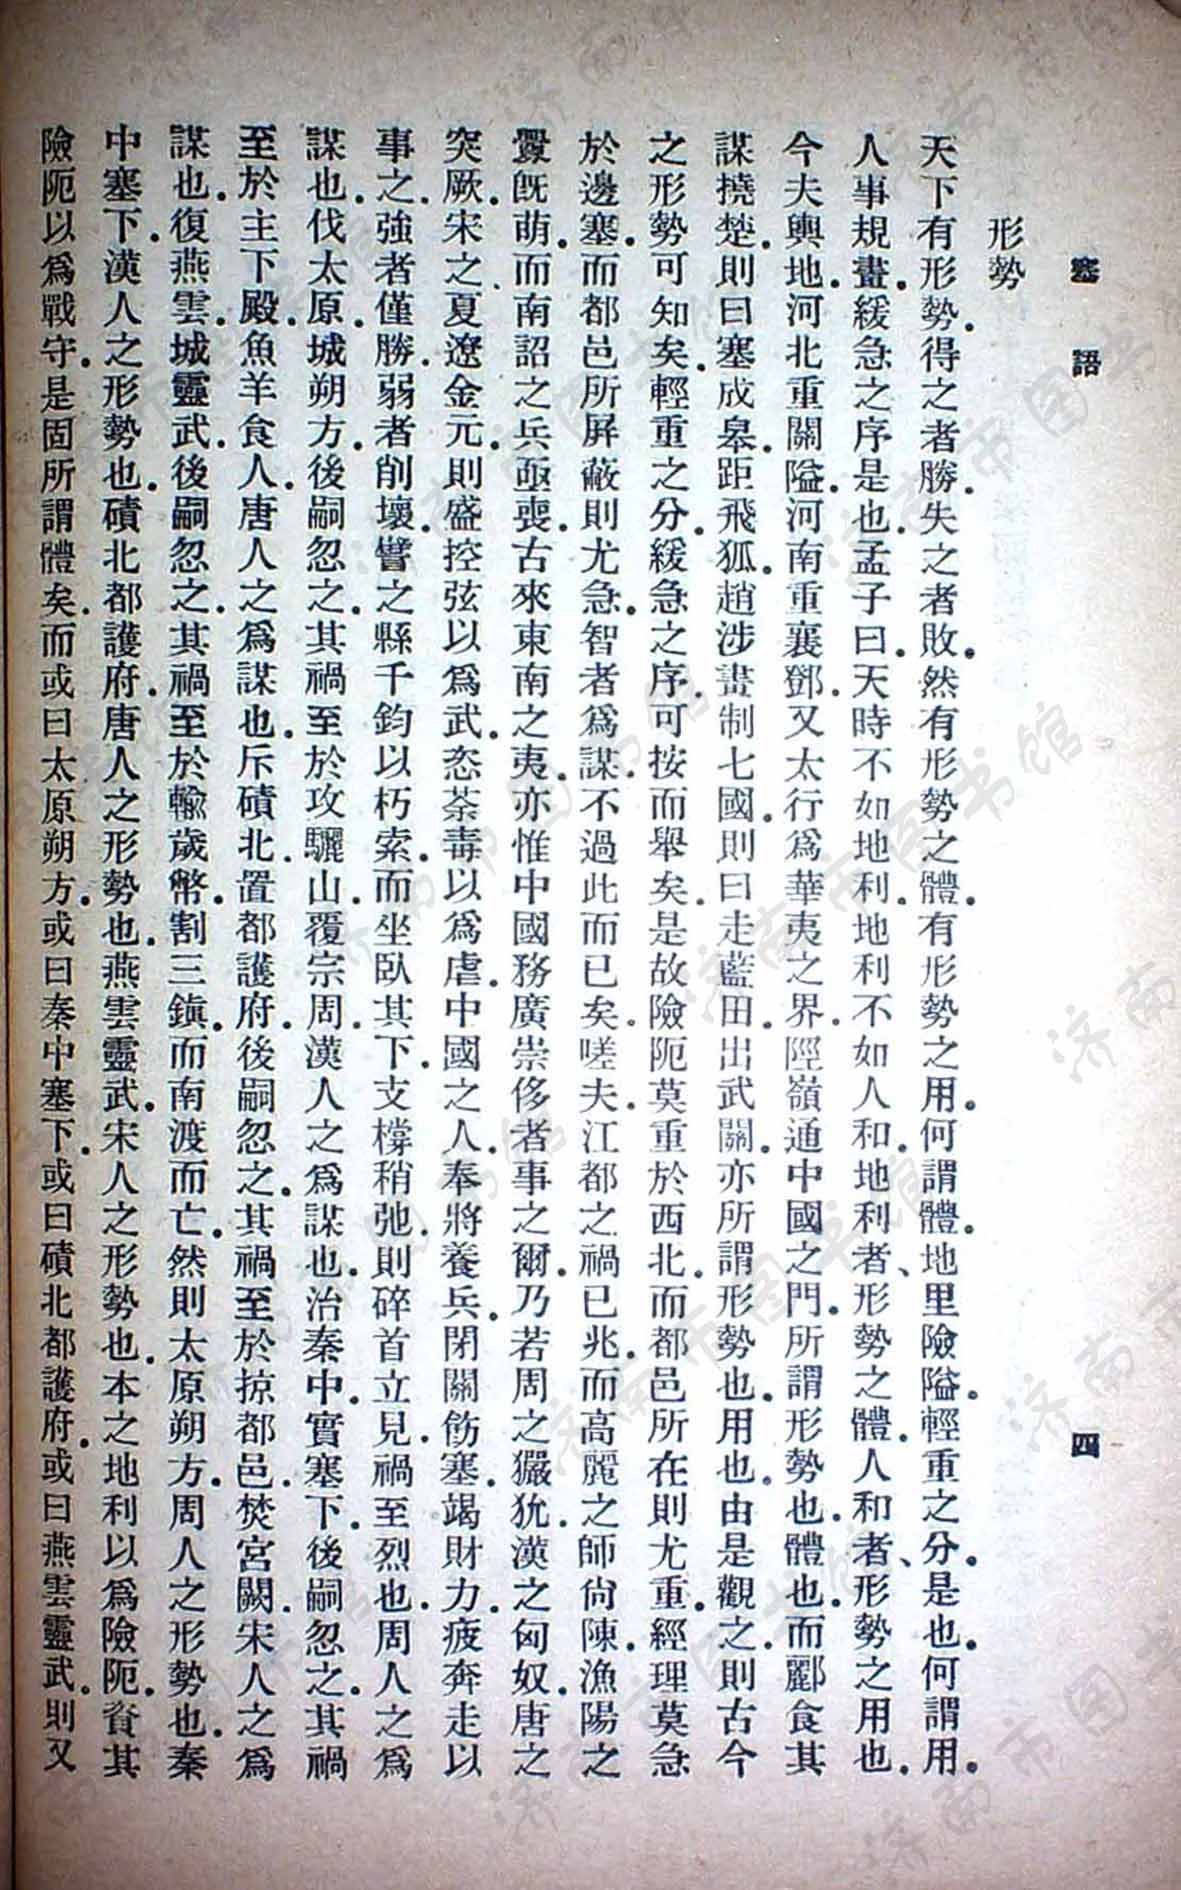 塞語 四
形勢
天下有形勢．得之者勝．失之者敗．然有形勢之體．有形勢之用．何謂體．地里險隘．輕重之分．是也．何謂用．
人事規畫．緩急之序．是也．孟子曰．天時不如地利．地利不如人和．地利者、形勢之體．人和者、形勢之用也．
今夫輿地．河北重關隘．河南重襄鄧．又太行爲華夷之界．陘嶺通中國之門．所謂形勢也．體也．而酈食其
謀撓楚．則曰塞成皋．距飛狐．趙涉畫制七國．則曰走藍田．出武關．亦所謂形勢也．用也．由是觀之．則古今
之形勢可知矣．輕重之分．緩急之序．可按而舉矣．是故險阨莫重於西北．而都邑所在則尤重．經理莫急
於邊塞．而都邑所屏蔽則尤急．智者爲謀．不過此而已矣．嗟夫．江都之禍已兆．而高麗之師尙陳．漁陽之
釁旣萌．而南詔之兵亟喪．古來東南之夷．亦惟中國務廣崇侈者事之爾．乃若周之玁狁．漢之匈奴．唐之
突厥．宋之夏遼金元．則盛控弦以爲武．恣荼毒以爲虐．中國之人．奉將養兵．閉關飭塞．竭財力．疲奔走以
事之．強者僅勝．弱者削壞．譬之縣千鈞以朽索．而坐臥其下．支橕稍弛．則碎首立見．禍至烈也．周人之爲
謀也．伐太原．城朔方．後嗣忽之．其禍至於攻驪山．覆宗周．漢人之爲謀也．治秦中．實塞下．後嗣忽之．其禍
至於主下殿．魚羊食人．唐人之爲謀也．斥磧北．置都護府．後嗣忽之．其禍至於掠都邑．焚宮闕．宋人之爲
謀也．復燕雲．城靈武．後嗣忽之．其禍至於輸歲幣．割三鎭．而南渡而亡．然則太原朔方．周人之形勢也．秦
中塞下．漢人之形勢也．磧北都護府．唐人之形勢也．燕雲靈武．宋人之形勢也．本之地利以爲險阨．資其
險阨以爲戰守．是固所謂體矣．而或曰太原朔方．或曰秦中塞下．或曰磧北都護府．或曰燕雲靈武．則又
济南市图书馆